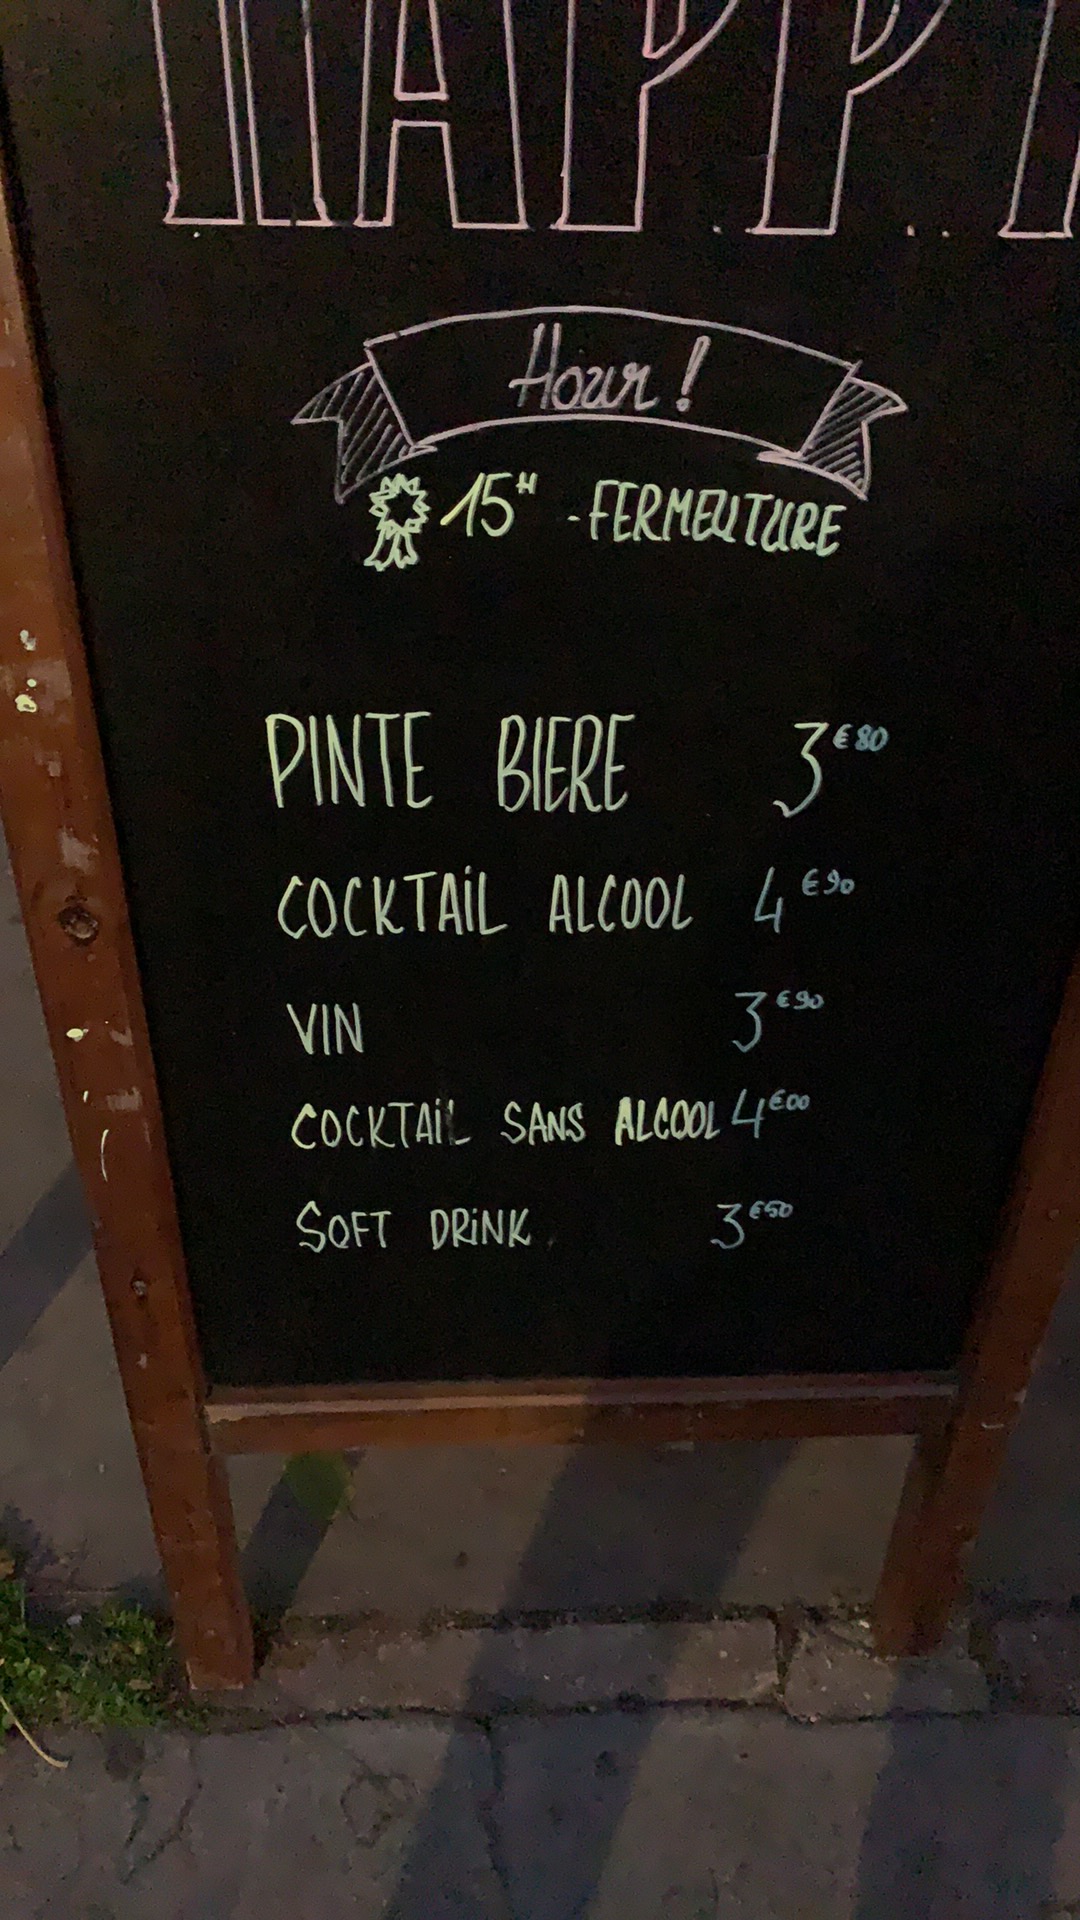 HAPPY
Hour !
15H - FERMEUTURE
PINTE BIERE 3€80
COCKTAiL ALCOOL 4€90
VIN 3€90
COCKTAiL SANS ALCOOL 4€00
SOFT DRiNK 3€50